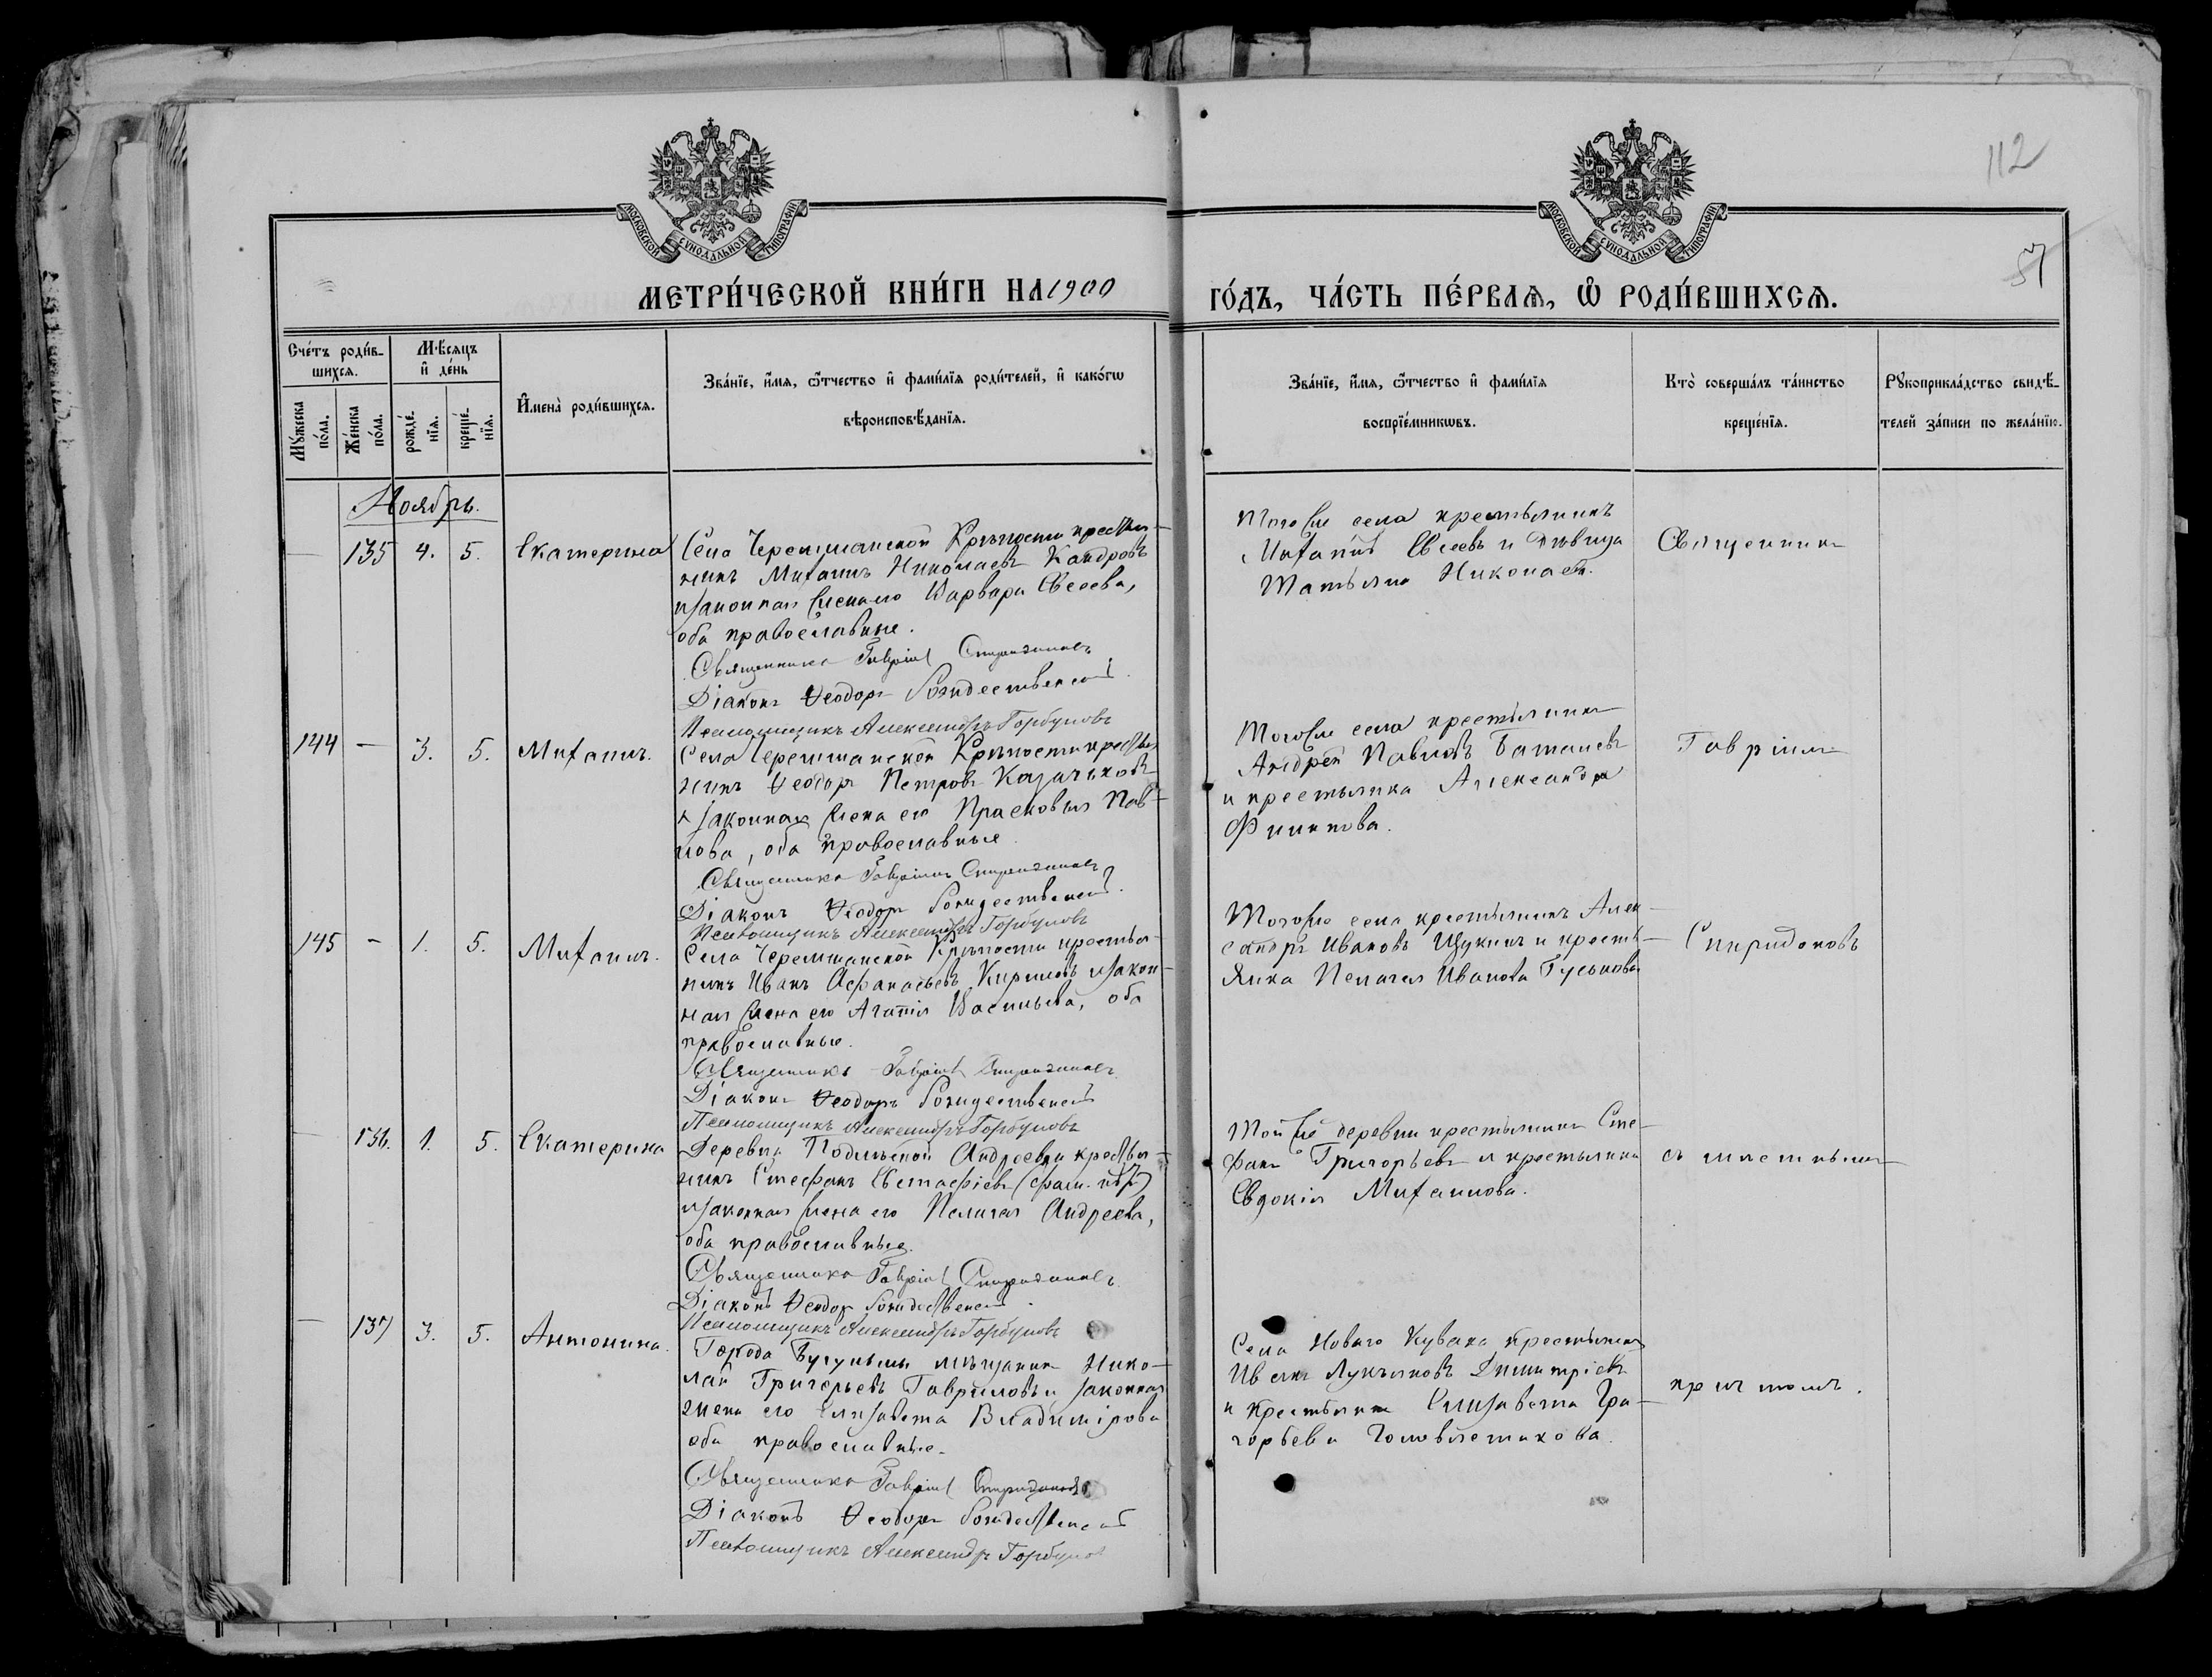 112
57
МОСКОВСКОЙ СУНОДАЛЬНОЙ ТИПОГРАФІИ
МОСКОВСКОЙ СУНОДАЛЬНОЙ ТИПОГРАФІИ
МЕТРИ́ЧЕСКОЙ КНИ́ГИ НА 1900
ГО́ДЪ, ЧА́СТЬ ПЕ́РВАѦ, Ѽ РОДИ́ВШИХСѦ.
Сче́тъ роди́в-
шихсѧ.
Мꙋ́жеска
по́ла.
Же́нска
по́ла.
Мѣ́сѧцъ
и҆ де́нь
рожде́-
нїѧ.
креще́-
нїѧ.
И҆мена̀ роди́вшихсѧ.
Зва́нїе, и҆́мѧ, ѻ҆́тчество и҆ фами́лїѧ роди́телей, и҆ како́гѡ
вѣроисповѣ́данїѧ.
Зва́нїе, и҆́мѧ, ѻ҆́тчество и҆ фами́лїѧ
воспрїе́мникѡвъ.
Кто̀ соверша́лъ та́инство
креще́нїѧ.
Рꙋкоприкла́дство свидѣ́-
телей за́писи по жела́нїю.
Ноябрь.
— 135 4. 5. Екатерина
Села Черемшанской Крѣпости крестья-
нинъ Михаилъ Николаевъ Кандровъ
и законная жена его Варвара Евсеева,
оба православные.
Священникъ Гавріилъ Спиридоновъ
Діаконъ Ѳеодоръ Рождественскій
Псаломщикъ Александръ Горбуновъ
Того же села крестьянинъ
Михаилъ Евсеевъ и дѣвица
Татьяна Николаева.
Священникъ
144 — 3. 5. Михаилъ.
Села Черемшанской Крѣпости крестья
нинъ Ѳеодоръ Петровъ Казачковъ
и законная жена его Прасковья Пав-
лова, оба православные
Священникъ Гавріилъ Спиридоновъ
Діаконъ Ѳеодоръ Рождественскій.
Псаломщикъ Александръ Горбуновъ
Того же села крестьянинъ
Андрей Павловъ
и крестьянка Александра
Филипова.
Гавріилъ
145 — 1. 5. Михаилъ.
Села Черемшанской Крѣпости крестья-
нинъ Иванъ Афанасьевъ Кириловъ и закон-
ная жена его Агапія Васильева, оба
православные.
Священникъ Гавріилъ Спиридоновъ
Діаконъ Ѳеодоръ Рождественскій
Псаломщикъ Александръ Горбуновъ
Того же села крестьянинъ Алек-
сандръ Ивановъ Щукинъ и кресть-
янка Пелагея Иванова Гуськова
Спиридоновъ
— 136. 1. 5. Екатерина
Деревни Подлѣсной Андреевки крестья-
нинъ Стефанъ Евстафіевъ
и законная жена его Пелагея Андреева,
оба православные.
Священникъ Гавріилъ Спиридоновъ
Діаконъ Ѳеодоръ Рождественскій.
Псаломщикъ Александръ Горбуновъ
Той же деревни крестьянинъ Сте-
фанъ Григорьевъ и крестьянка
Евдокія Михаилова.
съ мѣстнымъ
— 137 3. 5. Антонина.
Города Бугульмы мѣщанинъ Нико-
лай Григорьевъ Гавриловъ и законная
жена его Елизавета Владимірова
оба православные.
Священникъ Гавріилъ Спиридоновъ
Діаконъ Ѳеодоръ Рождественскій
Псаломщикъ Александръ Горбунов
Села Новаго Кувака крестьянинъ
Иванъ Лукьяновъ Димитріевъ
и крестьянка Елизавета Гри-
горьева
причтомъ.